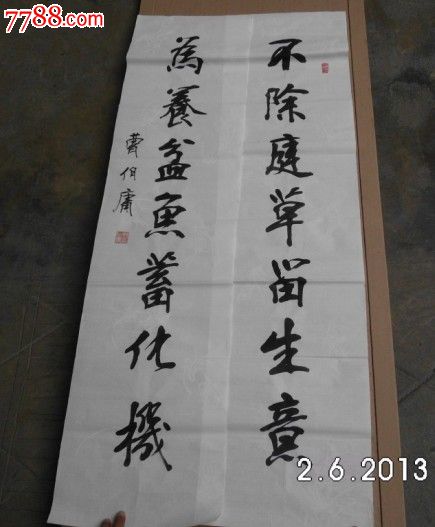 7788.com
不除庭草留生意
為養盆魚蓄化機
費伯庸
2.6.2013